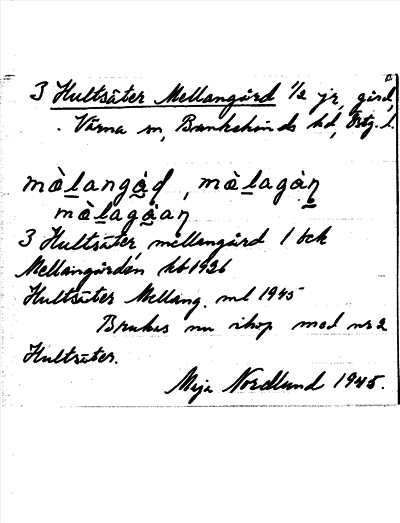 3 Hultsäter Mellangård 1/2 jr, gård,
Värna sn, Bankekinds hd, Östg. l.
mà̱langå̱d, mà̱lagàn̠
mà̱lagå̱an
3 Hultsäter, mellangård 1 bck
Mellangården kb 1926
Hultsäter Mellang. ml 1945
Brukas nu ihop med nr 2
Hultsäter.
Maja Nordlund 1945.